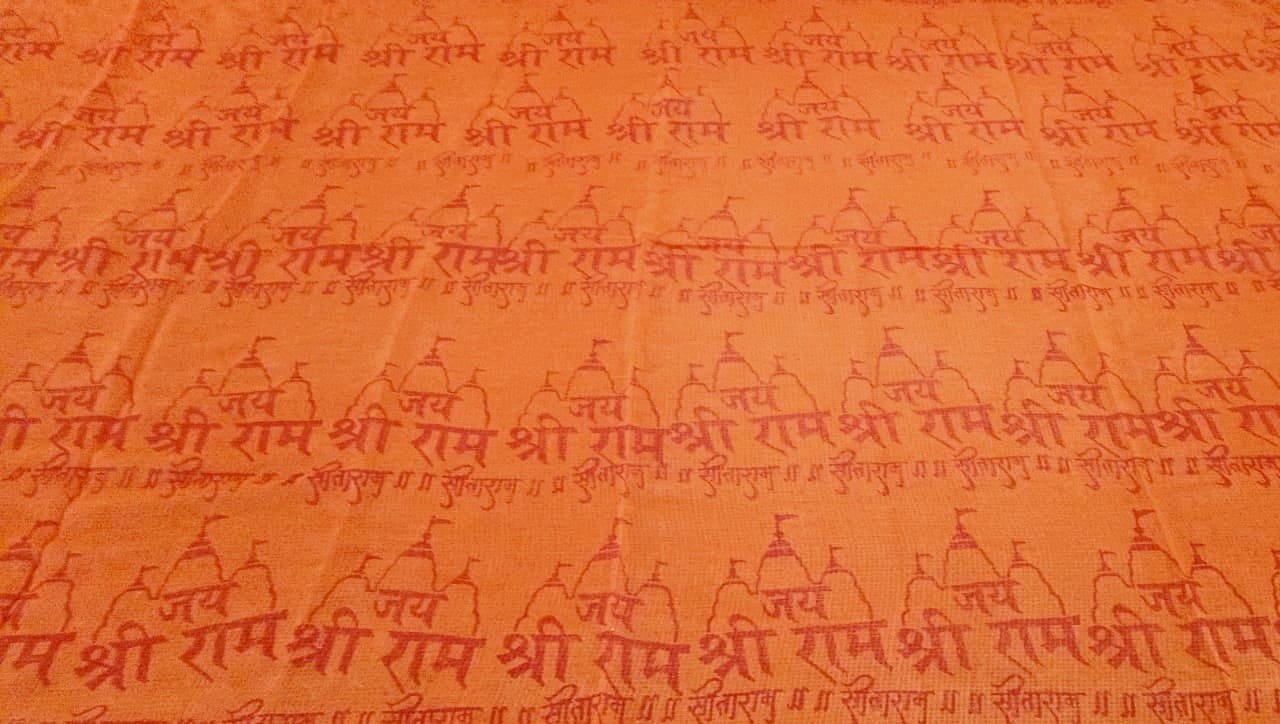 जय जय जय जय जय जय जय जय जय
राम श्री राम श्री राम श्री राम श्री राम श्री राम श्री राम श्री राम श्री राम श्री राम
जय जय जय जय जय जय जय जय जय
श्री राम श्री राम श्री राम श्री राम श्री राम श्री राम श्री राम श्री राम श्री राम
॥ सीताराम ॥ ॥ सीताराम ॥ ॥ सीताराम ॥ ॥ सीताराम ॥ ॥ सीताराम ॥ ॥ सीताराम ॥ ॥ सीताराम ॥ ॥ सीताराम ॥ ॥ सीताराम ॥
जय जय जय जय जय जय जय जय जय
राम श्री राम श्री राम श्री राम श्री राम श्री राम श्री राम श्री राम श्री राम श्री
सीताराम ॥ ॥ सीताराम ॥ ॥ सीताराम ॥ ॥ सीताराम ॥ ॥ सीताराम ॥ ॥ सीताराम ॥ ॥ सीताराम ॥ ॥ सीताराम ॥ ॥ सीताराम ॥ ॥ सीताराम ॥ ॥ सीताराम ॥
जय जय जय जय जय जय जय जय
श्री राम श्री राम श्री राम श्री राम श्री राम श्री राम श्री राम श्री राम
॥ सीताराम ॥ ॥ सीताराम ॥ ॥ सीताराम ॥ ॥ सीताराम ॥ ॥ सीताराम ॥ ॥ सीताराम ॥ ॥ सीताराम ॥ ॥ सीताराम ॥ ॥ सीताराम ॥ ॥ सीताराम
जय जय जय जय जय जय
राम श्री राम श्री राम श्री राम श्री राम श्री राम श्री राम
॥ सीताराम ॥ ॥ सीताराम ॥ ॥ सीताराम ॥ ॥ सीताराम ॥ ॥ सीताराम ॥ ॥ सीताराम ॥ ॥ सीताराम ॥